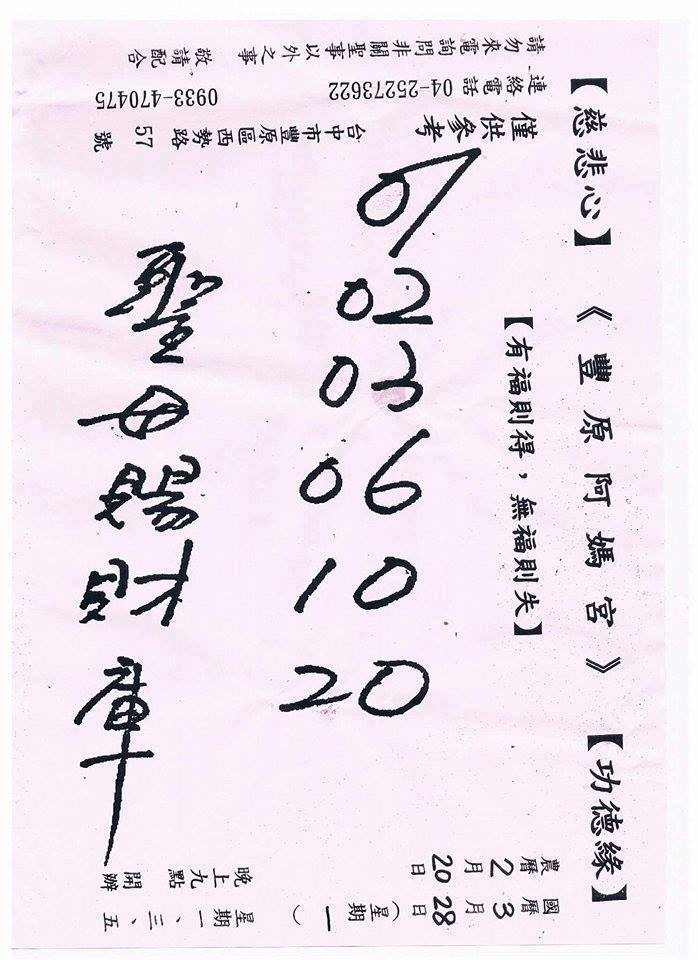 【慈悲心】《豐原阿媽宮》【功德緣】
【有福則得，無福則失】
國曆 3月 28日（星期 一 ）
農曆 2月 20日
01
02
03
06
10
20
聖母賜財庫
星期一、三、五
晚上九點開辦
僅供參考
台中市豐原區西勢路 57 號
連絡電話 04-25273622 0933-470475
請勿來電詢問非關聖事以外之事 敬請配合